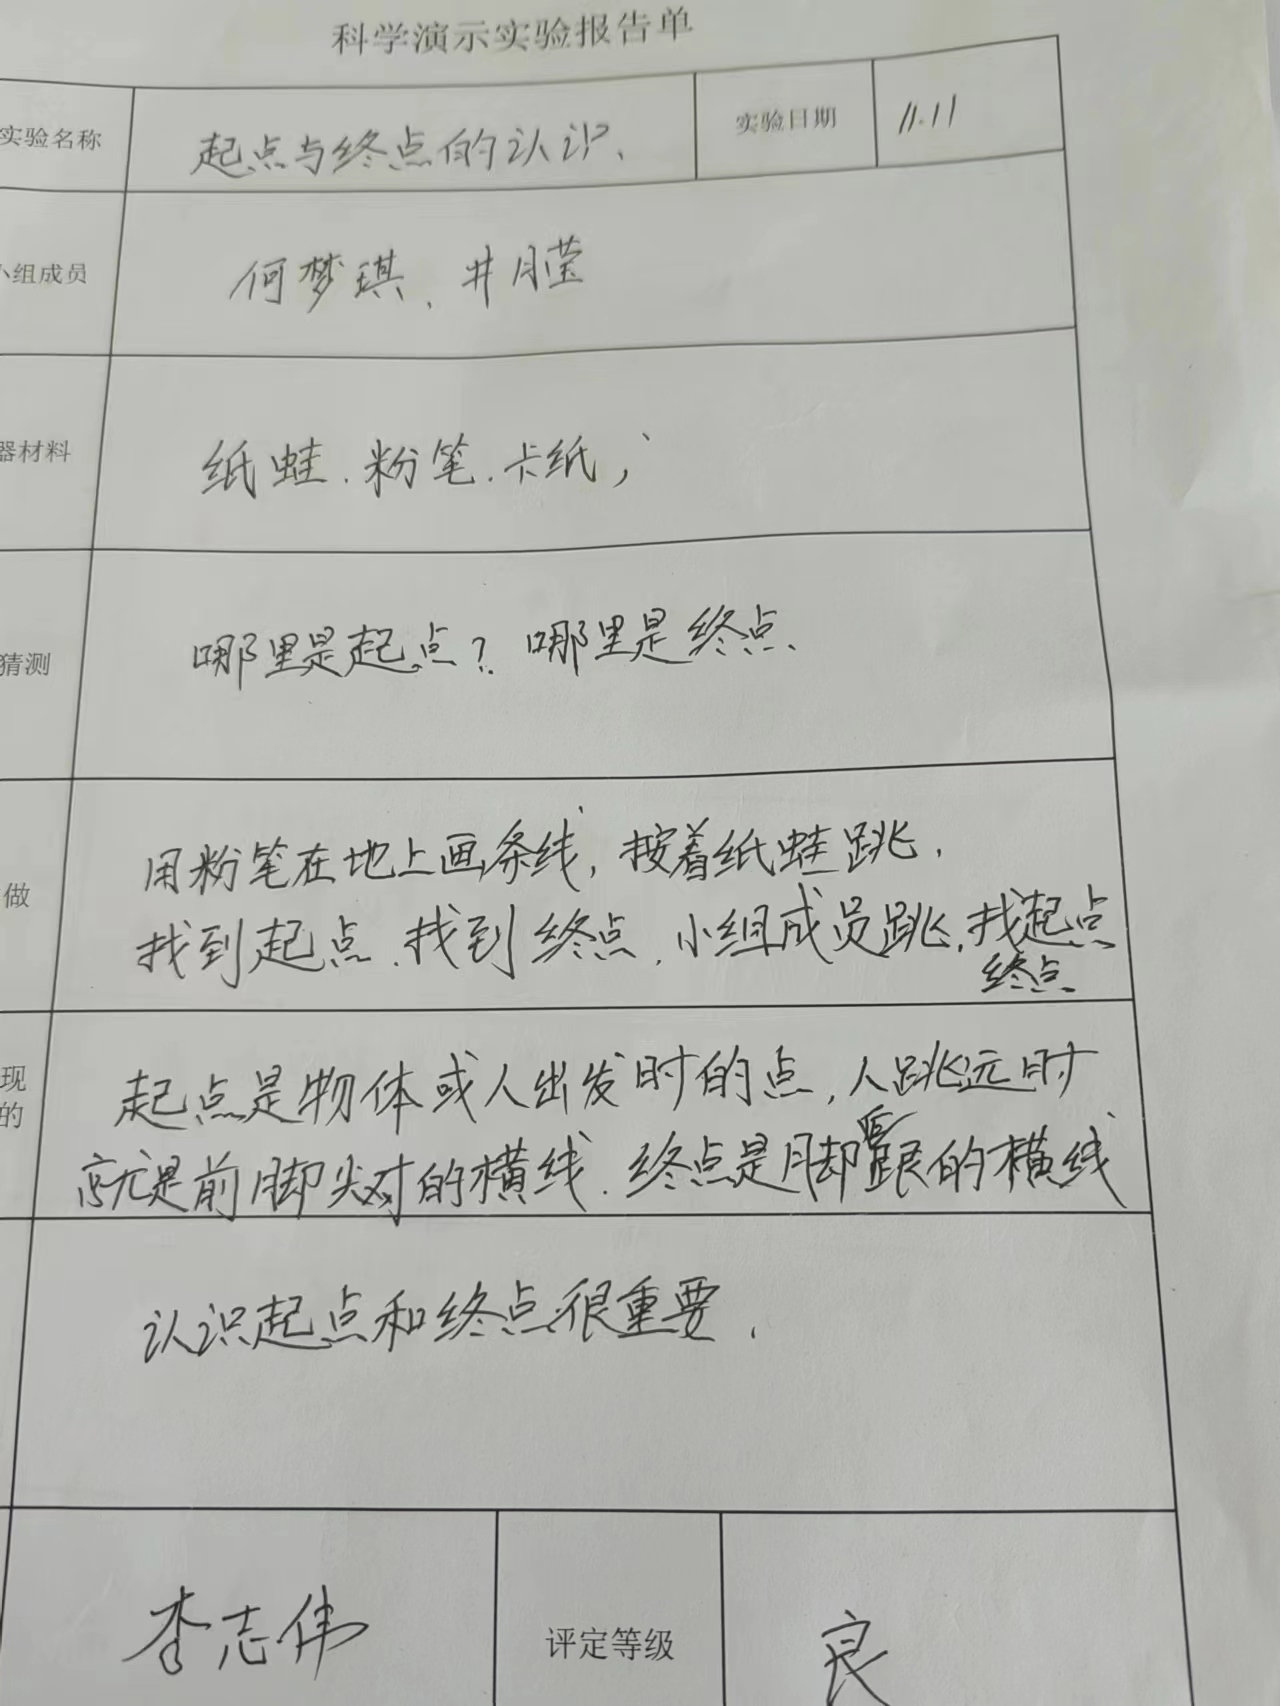 科学演示实验报告单
实验名称 起点与终点的认识、 实验日期 11.11
小组成员 何梦琪、井月莹
器材料 纸蛙、粉笔、卡纸,
猜测 哪里是起点?哪里是终点、
做 用粉笔在地上画条线,按着纸蛙跳,
找到起点、找到终点,小组成员跳,找起点
终点
现 起点是物体或人出发时的点,人跳远时
的 就是前脚尖对的横线.终点是脚后跟的横线
认识起点和终点很重要.
李志伟 评定等级 良